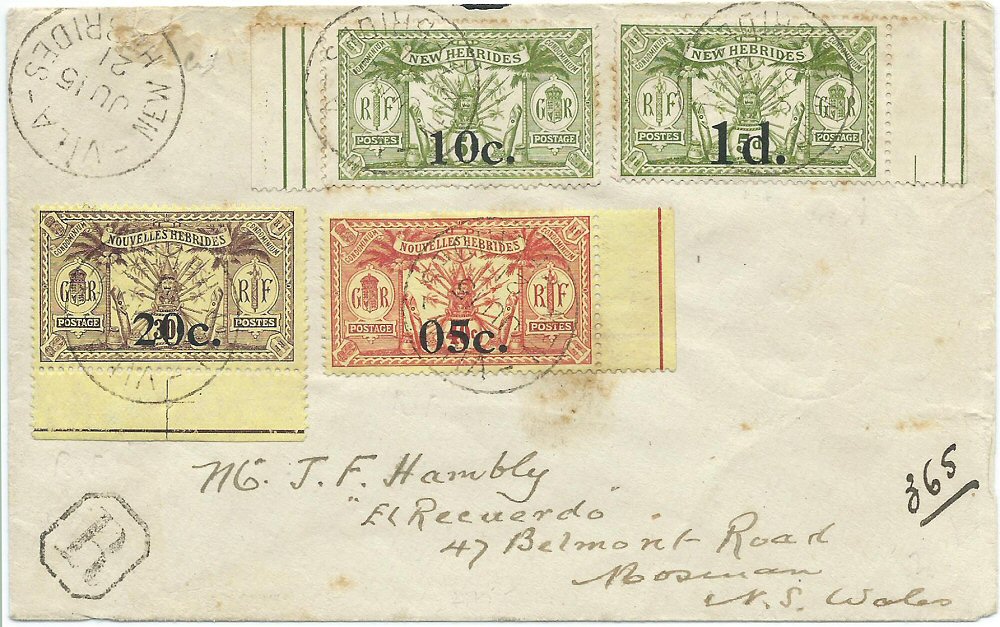 VILA - NEW HEBRIDES
JU 15
21
CONDOMINIUM
NEW HEBRIDES
CONDOMINIUM
RF
GR
POSTES
POSTAGE
10c.
CONDOMINIUM
NEW HEBRIDES
CONDOMINIUM
RF
GR
POSTES
POSTAGE
5d
1d.
CONDOMINIUM
NOUVELLES HEBRIDES
CONDOMINIUM
GR
RF
POSTAGE
POSTES
20c.
CONDOMINIUM
NOUVELLES HEBRIDES
CONDOMINIUM
GR
RF
POSTAGE
POSTES
05c.
Mr. J. F. Hambly
"El Recuerdo"
47 Belmont Road
Mosman
N. S. Wales
365
R